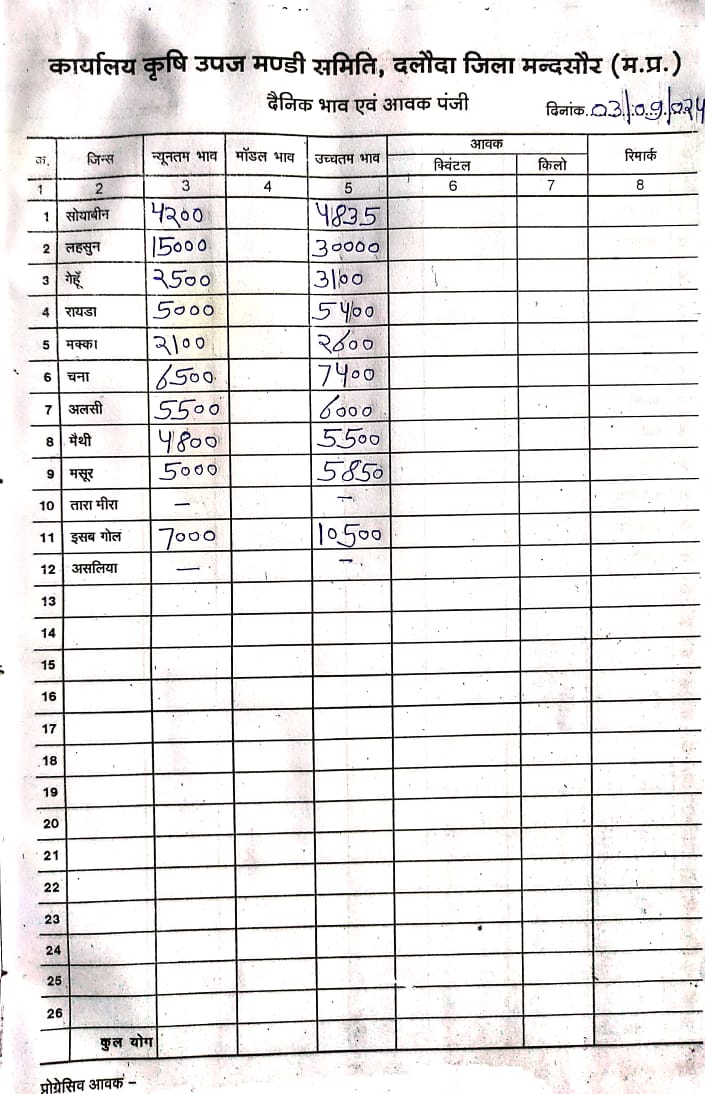 कार्यालय कृषि उपज मण्डी समिति, दलौदा जिला मन्दसौर (म.प्र.)
दैनिक भाव एवं आवक पंजी
दिनांक. 03/09/024
क्र. जिन्स न्यूनतम भाव मॉडल भाव उच्चतम भाव आवक रिमार्क
क्विंटल किलो
1 2 3 4 5 6 7 8
1 सोयाबीन 4200 4835
2 लहसुन 15000 30000
3 गेहूँ 2500 3100
4 रायडा 5000 5400
5 मक्का 2100 2600
6 चना 6500 7400
7 अलसी 5500 6000
8 मैथी 4800 5500
9 मसूर 5000 5850
10 तारा मीरा – –
11 इसब गोल 7000 10500
12 असलिया – –
13
14
15
16
17
18
19
20
21
22
23
24
25
26
कुल योग
प्रोग्रेसिव आवक –